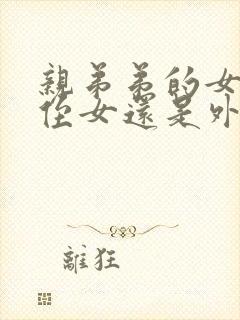 親弟弟的女
侄女還是外
離狂